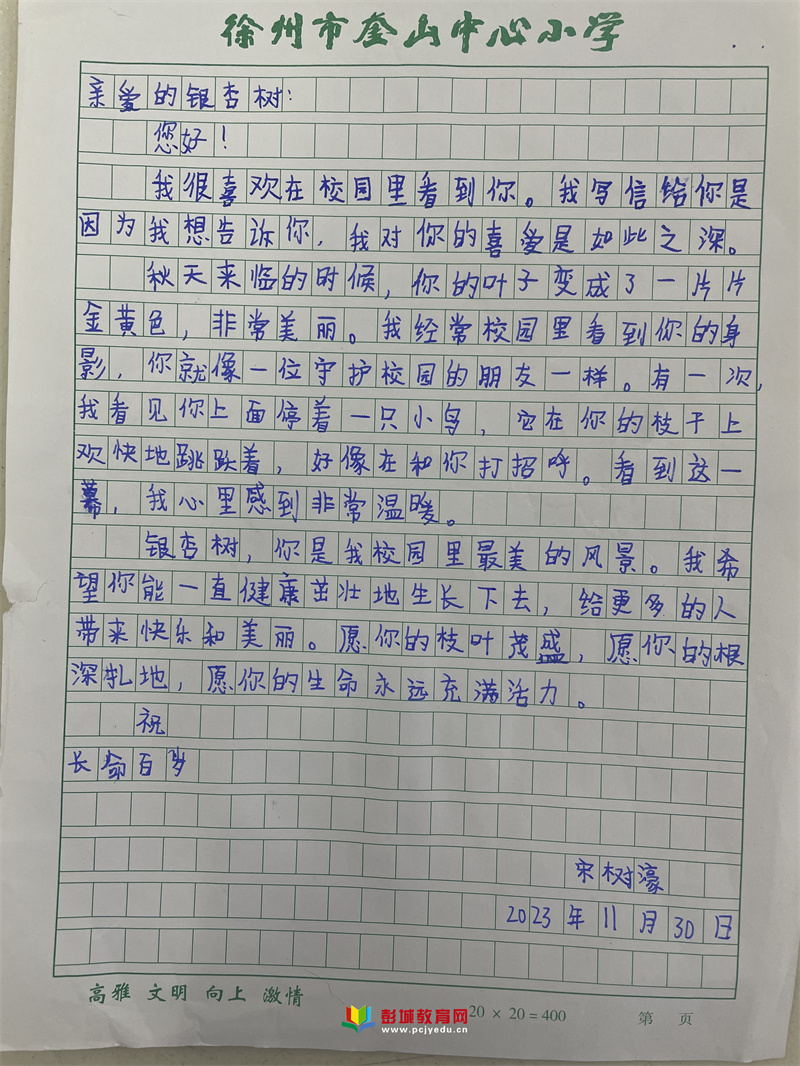 徐州市奎山中心小学
亲爱的银杏树：
您好！
我很喜欢在校园里看到你。我写信给你是
因为我想告诉你，我对你的喜爱是如此之深。
秋天来临的时候，你的叶子变成了一片片
金黄色，非常美丽。我经常校园里看到你的身
影，你就像一位守护校园的朋友一样。有一次，
我看见你上面停着一只小鸟，它在你的枝干上
欢快地跳跃着，好像在和你打招呼。看到这一
幕，我心里感到非常温暖。
银杏树，你是我校园里最美的风景。我希
望你能一直健康茁壮地生长下去，给更多的人
带来快乐和美丽。愿你的枝叶茂盛，愿你的根
深扎地，愿你的生命永远充满活力。
祝
长命百岁
宋树濠
2023年11月30日
高雅 文明 向上 激情
彭城教育网
www.pcjyedu.cn
20 × 20 = 400
第 页